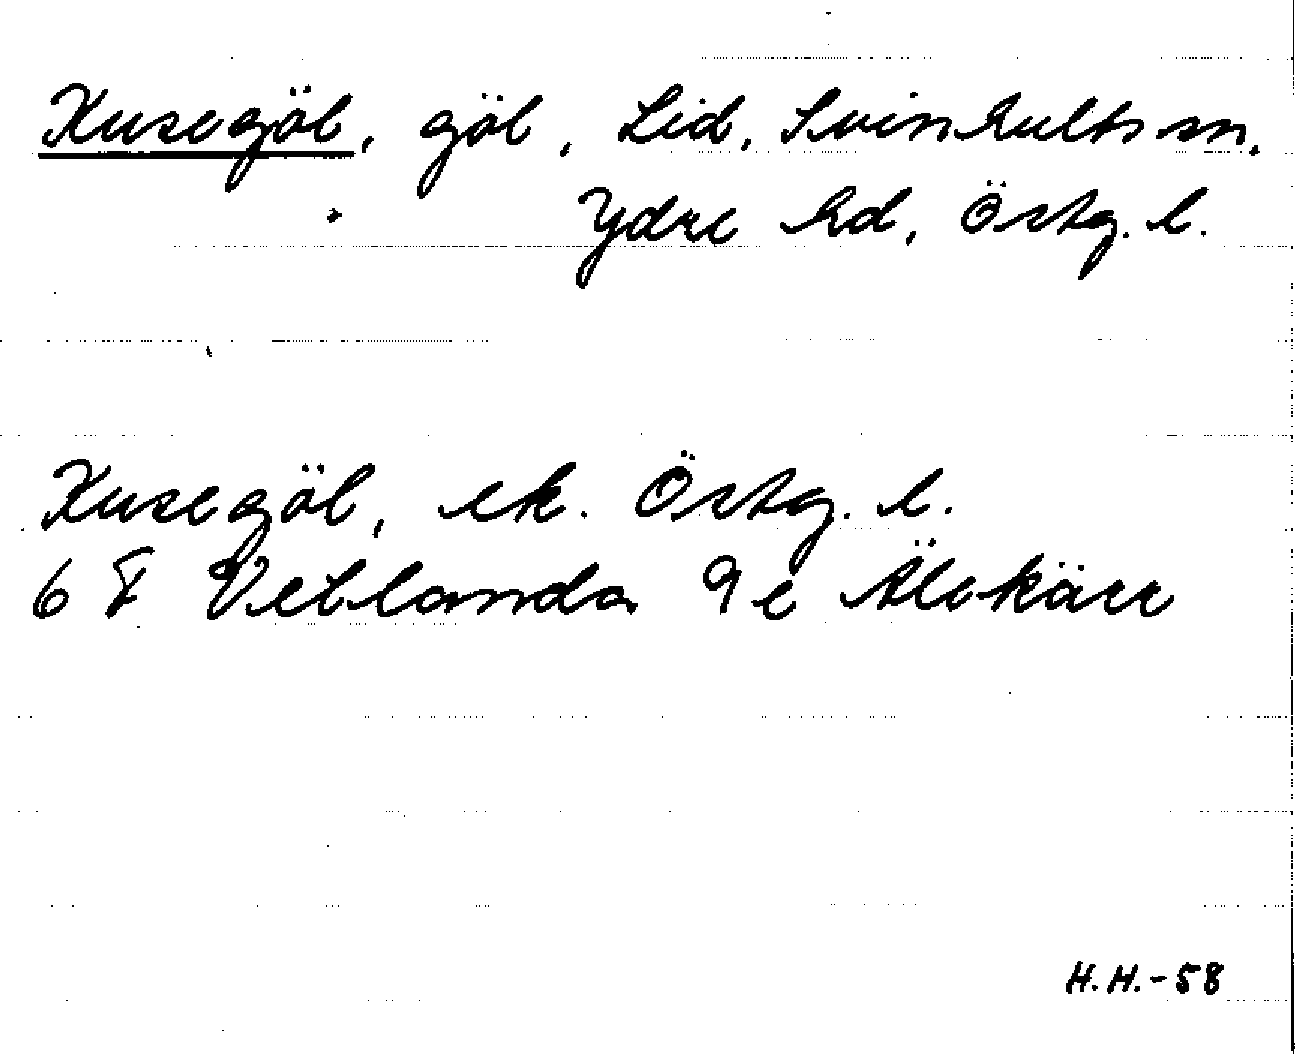 Kusegöl, göl, Lid, Svinhults sn.
Ydre hd, Östg. l.
Kusegöl, ek. Östg. l.
6 F Vetlanda 9 e Älekärr
H.H.-58